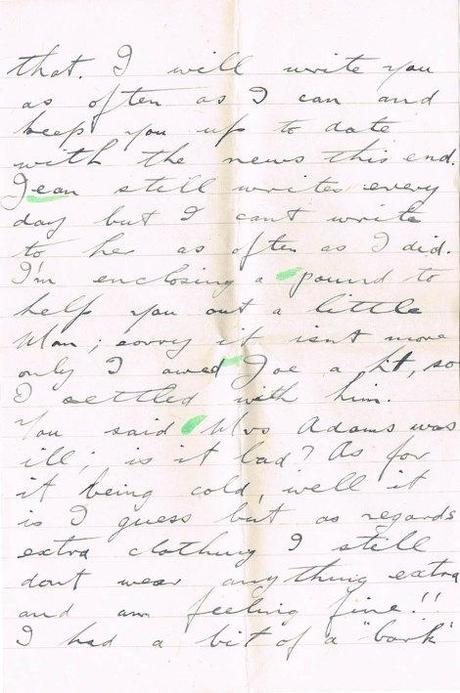 that. I will write you
as often as I can and
keep you up to date
with the news this end.
Jean still writes every
day but I cant write
to her as often as I did.
I'm enclosing a pound to
help you out a little
Mam; sorry it isnt more
only I owed Joe a bit, so
I settled with him.
You said Mrs Adams was
ill; is it bad? As for
it being cold, well it
is I guess but as regards
extra clothing I still
dont wear anything extra
and am feeling fine!!
I had a bit of a "bark"